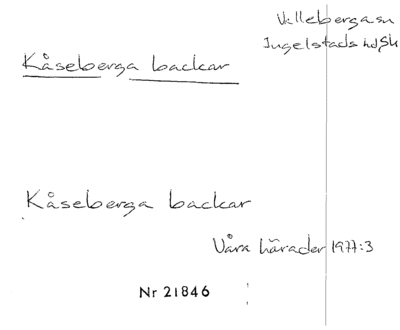 Valleberga sn
Ingelstads hd, Sk
Kåseberga backar
Kåseberga backar
Våra härader 1977:3
Nr 21846